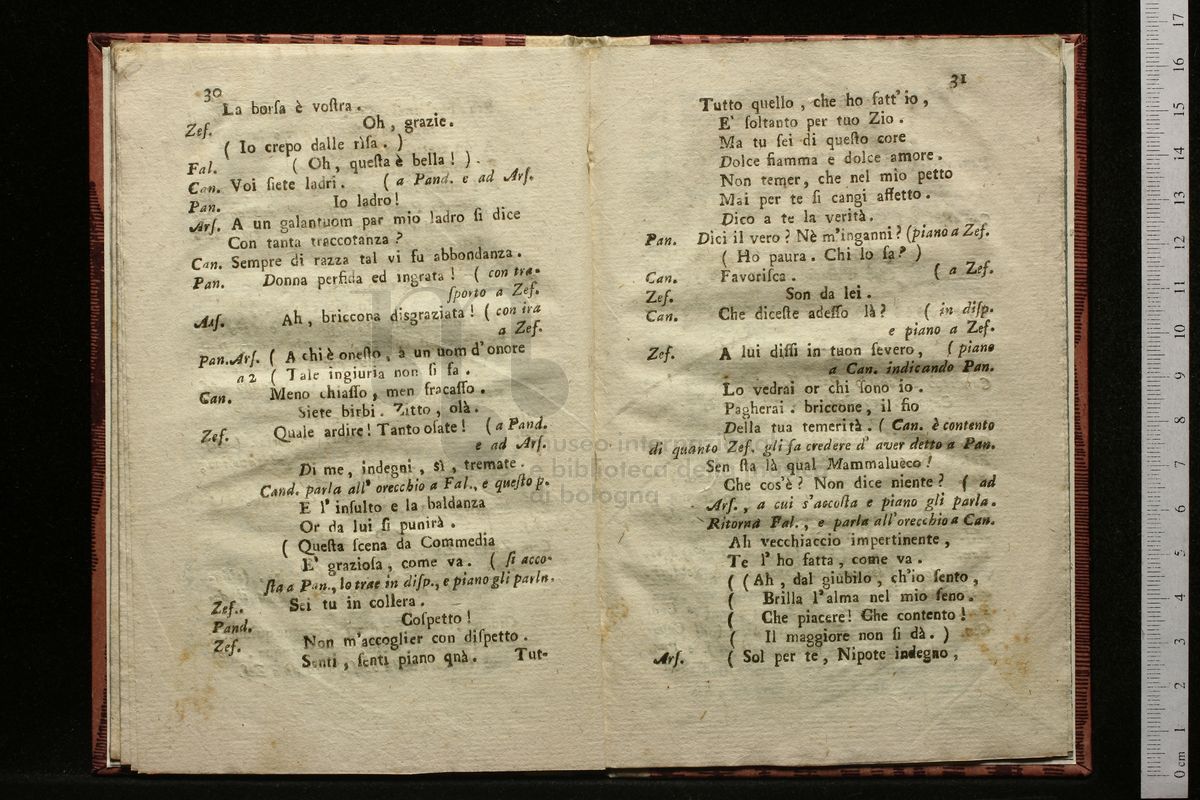 30
La borſa è voſtra.
Zeſ. Oh, grazie.
( Io crepo dalle rìſa. )
Fal. ( Oh, queſta è bella! ).
Can. Voi ſiete ladri. ( a Pand. e ad Arſ.
Pan. Io ladro!
Arſ. A un galantuom par mio ladro ſi dice
Con tanta traccotanza?
Can. Sempre di razza tal vi fu abbondanza.
Pan. Donna perfida ed ingrata! ( con tra-
ſporto a Zeſ.
Arſ. Ah, briccona disgraziata! ( con ira
a Zeſ.
Pan. Arſ. ( A chi è oneſto, a un uom d'onore
a 2 ( Tale ingiuria non ſi fa.
Can. Meno chiaſſo, men fracaſſo.
Siete birbi. Zitto, olà.
Zeſ. Quale ardire! Tanto oſate! ( a Pand.
e ad Arſ.
Di me, indegni, sì, tremate.
Cand. parla all' orecchio a Fal., e queſto p.
E l' inſulto e la baldanza
Or da lui ſi punirà.
( Queſta ſcena da Commedia
E' grazioſa, come va. ( ſi acco-
ſta a Pan., lo trae in diſp., e piano gli parla.
Zeſ. Sei tu in collera.
Pand. Coſpetto!
Zeſ. Non m'accoglier con diſpetto.
Senti, ſenti piano quà. Tut-
31
Tutto quello, che ho fatt' io,
E' ſoltanto per tuo Zio.
Ma tu ſei di queſto core
Dolce fiamma e dolce amore.
Non temer, che nel mio petto
Mai per te ſi cangi affetto.
Dico a te la verità.
Pan. Dici il vero? Nè m'inganni? (piano a Zeſ.
( Ho paura. Chi lo ſa? )
Can. Favoriſca. ( a Zeſ.
Zeſ. Son da lei.
Can. Che diceſte adeſſo là? ( in diſp.
e piano a Zeſ.
Zeſ. A lui diſſi in tuon ſevero, ( piano
a Can. indicando Pan.
Lo vedrai or chi ſono io.
Pagherai. briccone, il fio
Della tua temerità. ( Can. è contento
di quanto Zeſ. gli fa credere d' aver detto a Pan.
Sen ſta là qual Mammalueco!
Che cos'è? Non dice niente? ( ad
Arſ., a cui s'accoſta e piano gli parla.
Ritorna Fal., e parla all'orecchio a Can.
Ah vecchiaccio impertinente,
Te l' ho fatta, come va.
( ( Ah, dal giubilo, ch'io ſento,
( Brilla l'alma nel mio ſeno.
( Che piacere! Che contento!
( Il maggiore non ſi dà. )
Arſ. ( Sol per te, Nipote indegno,
museo internazionale
e biblioteca della
di bologna
0 cm 1 2 3 4 5 6 7 8 9 10 11 12 13 14 15 16 17